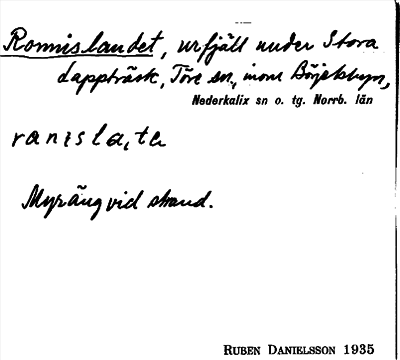 Ronnislandet, urfjäll under Stora
Lappträsk, Töre sn., inom Börjelsbyn,
Nederkalix sn o. tg. Norrb. län
ranisla,tɐ
Myräng vid strand.
RUBEN DANIELSSON 1935